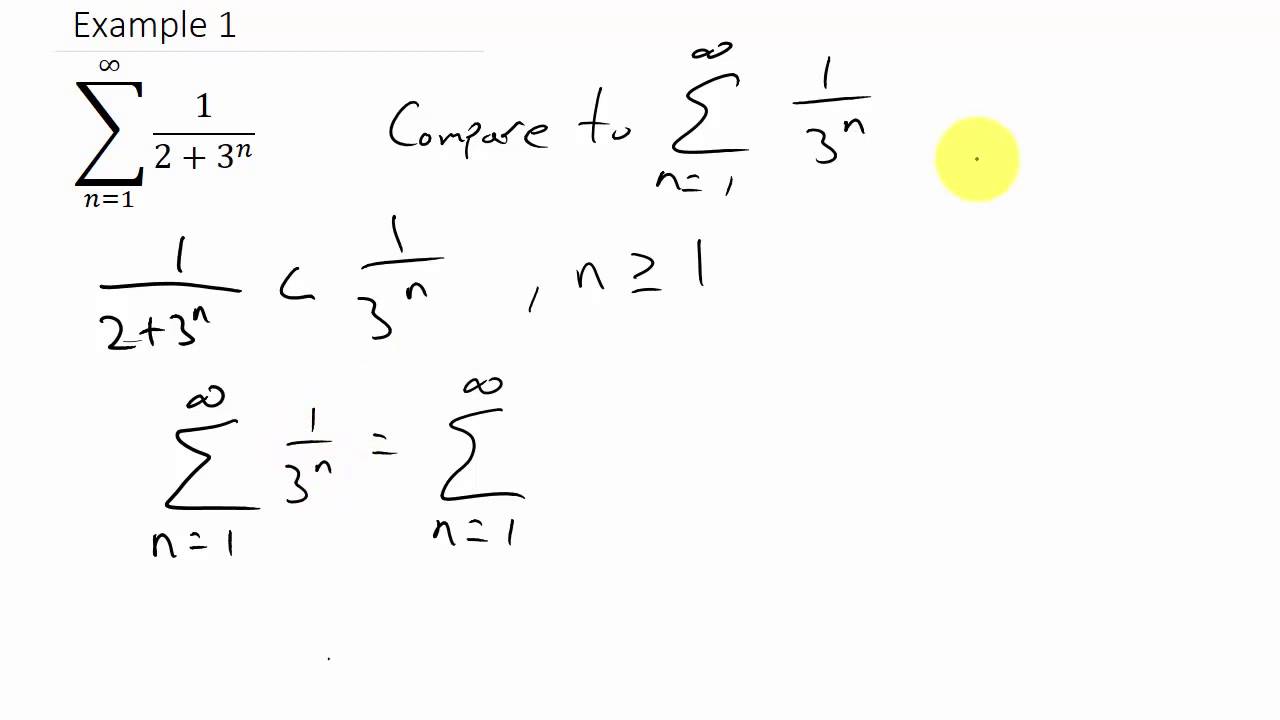 Example 1
∞ ∑ n=1 1/(2 + 3ⁿ) Compare to ∞ ∑ n=1 1/3ⁿ
1/(2+3ⁿ) < 1/3ⁿ , n ≥ 1
∞ ∑ n=1 1/3ⁿ = ∞ ∑ n=1